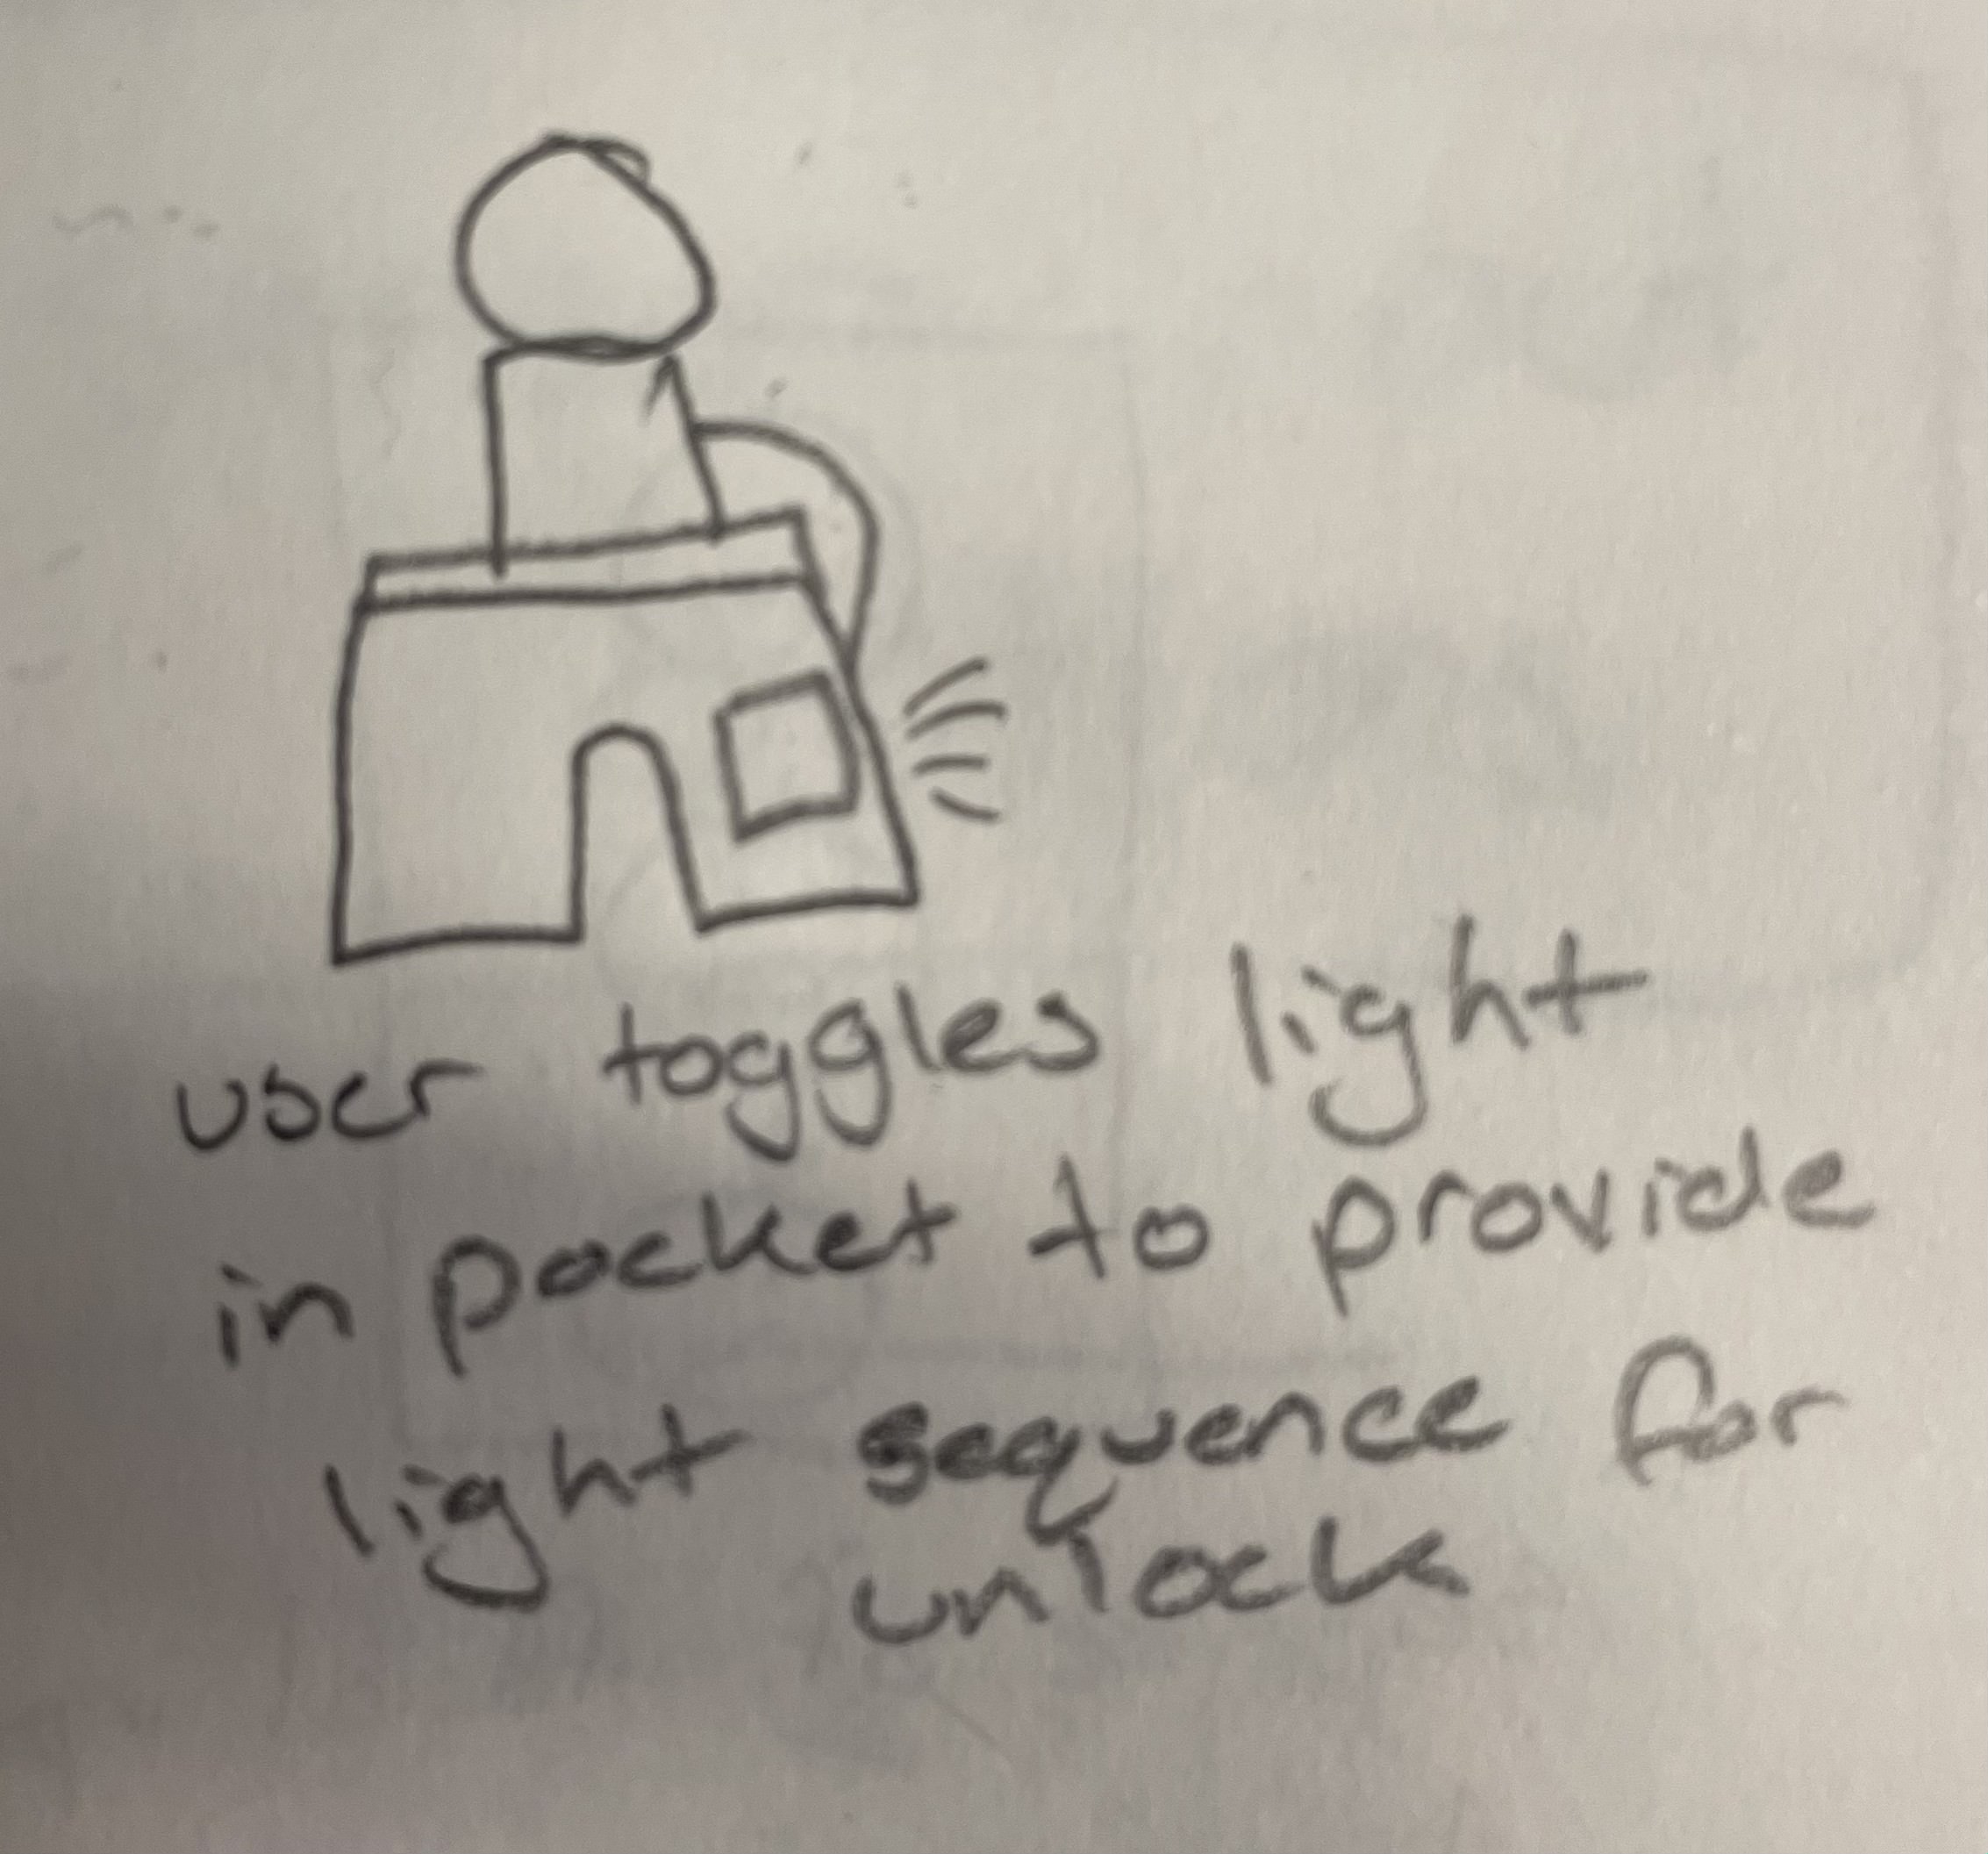 user toggles light
in pocket to provide
light sequence for
unlock